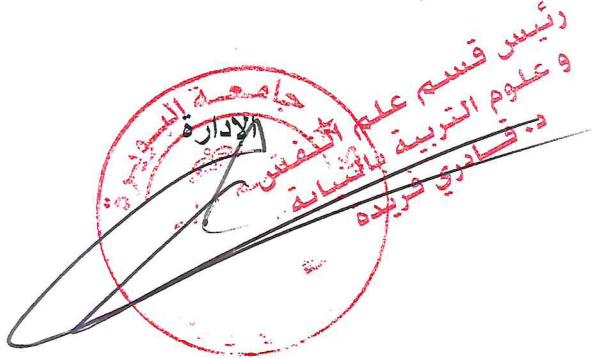 رئيس قسم علم النفس
و علوم التربية بالنيابة
د. قادري فريدة
جامعة البويرة
الإدارة